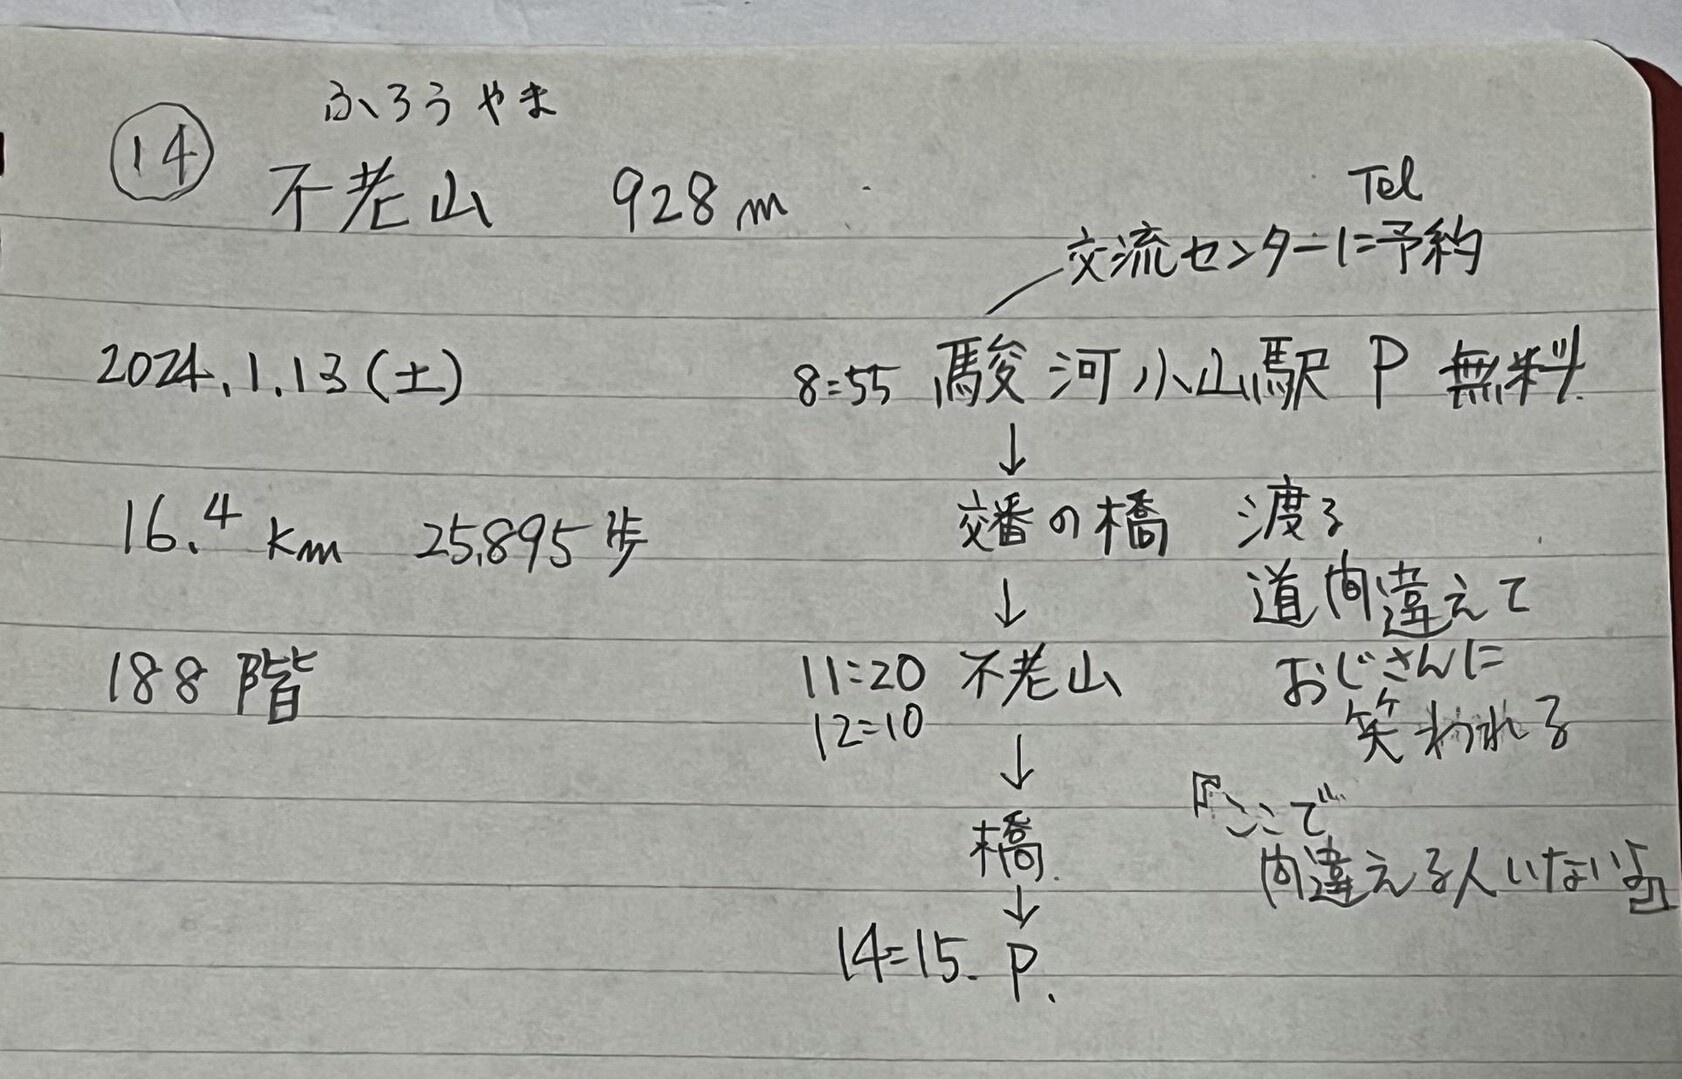 ふろうやま
⑭ 不老山 928m
2024.1.13(土)
16.4km 25,895歩
188階
Tel
交流センターに予約
8:55 駿河小山駅 P 無料
↓
交番の橋 渡る
↓ 道間違えて
11:20 不老山 おじさんに
12:10 笑われる
↓
『ここで
橋 間違える人いないよ』
↓
14:15. P.